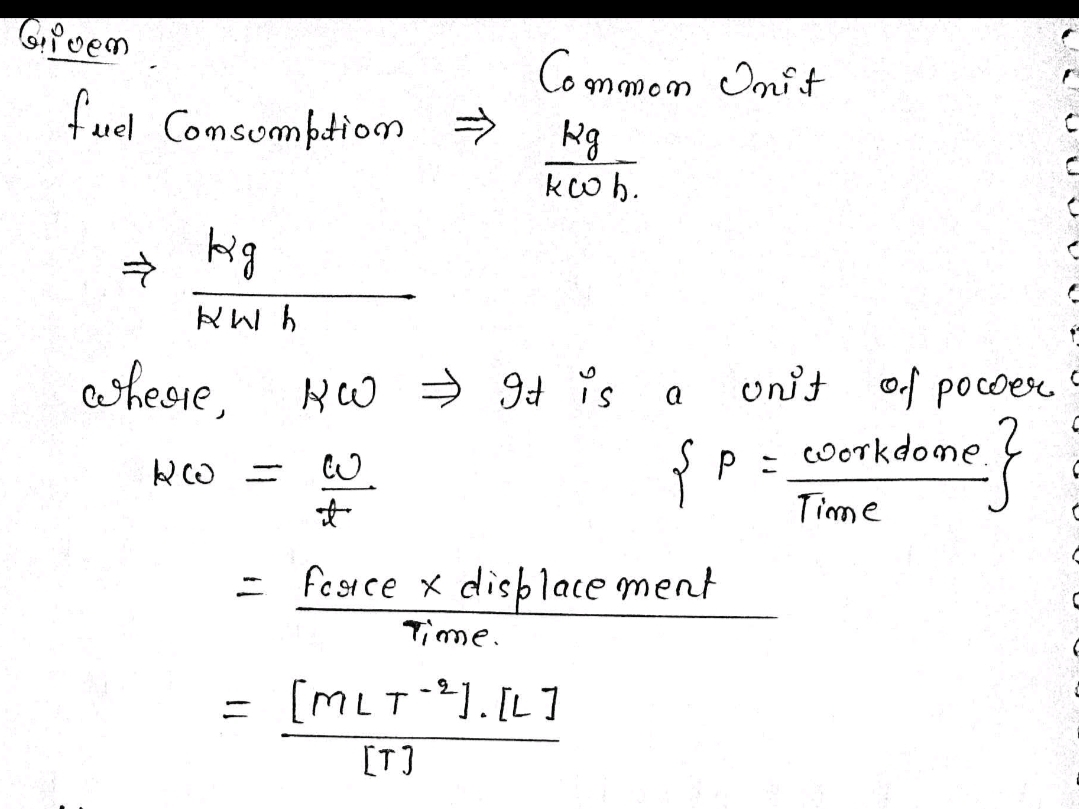 Given
Common Unit
fuel Consumption ⇒ kg / kwh.
⇒ kg / KWh
where, KW ⇒ It is a unit of power
KW = w / t { P = workdone. / Time }
= force × displacement / Time.
= [MLT⁻²].[L] / [T]